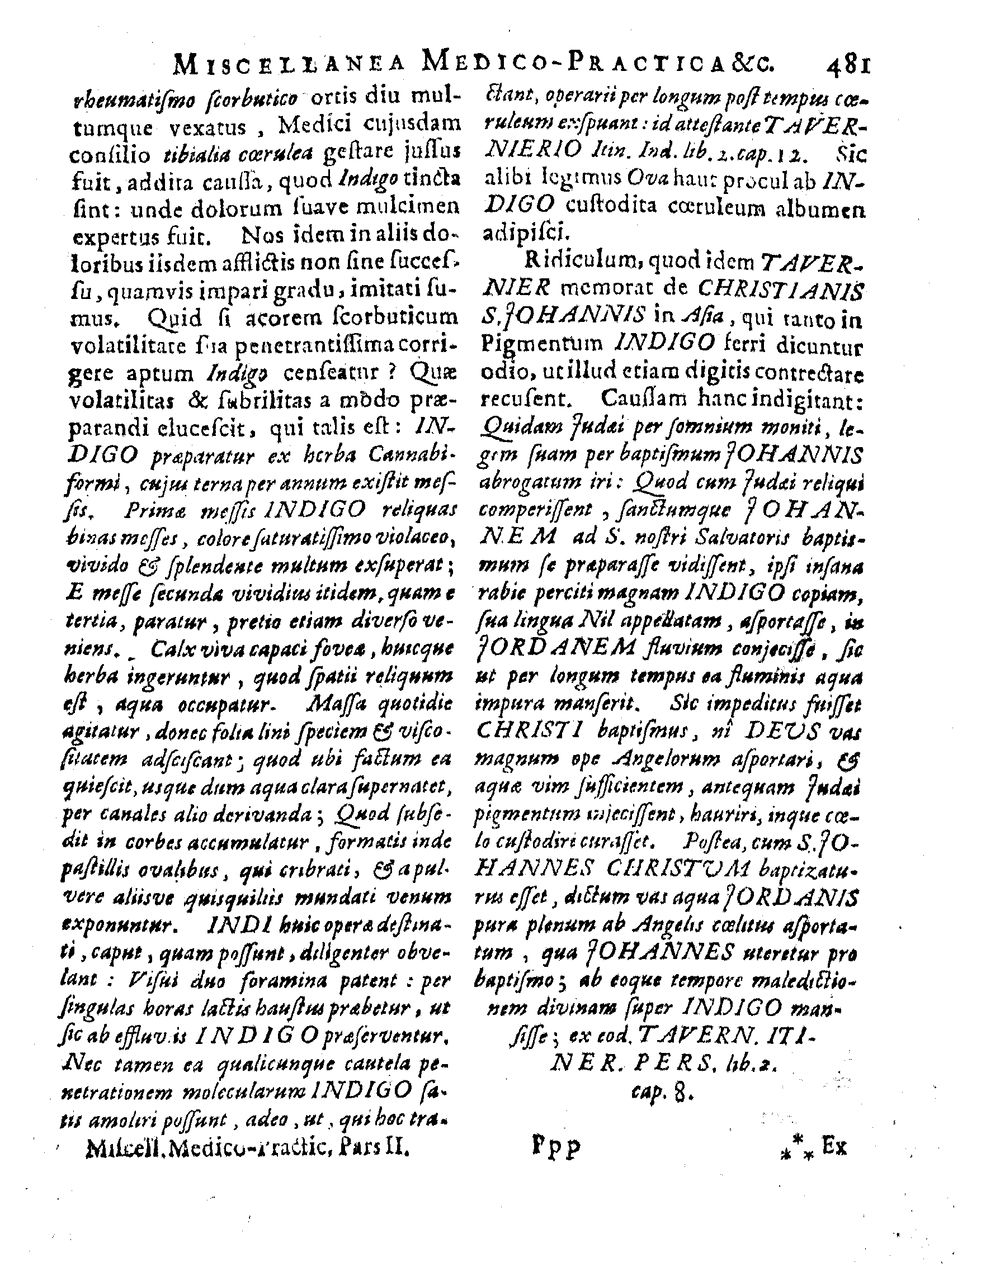 MISCELLANEA MEDICO-PRACTICA &c. 481
rheumatiſmo ſcorbutico ortis diu mul-
tumque vexatus , Medici cujusdam
conſilio tibialia cœrulea geſtare juſſus
fuit, addita cauſſa, quod Indigo tincta
ſint: unde dolorum ſuave mulcimen
expertus fuit. Nos idem in aliis do-
loribus iisdem afflictis non ſine ſucceſ-
ſu, quamvis impari gradu, imitati ſu-
mus. Quid ſi acorem ſcorbuticum
volatilitate ſua penetrantiſſima corri-
gere aptum Indigo cenſeatur ? Quæ
volatilitas & ſubtilitas a modo præ-
parandi eluceſcit, qui talis eſt: IN-
DIGO præparatur ex herba Cannabi-
formi, cujus terna per annum exiſtit meſ-
ſis. Prima meſſis INDIGO reliquas
binas meſſes, colore ſaturatiſſimo violaceo,
vivido & ſplendente multum exſuperat;
E meſſe ſecunda vividius itidem, quam e
tertia, paratur, pretio etiam diverſo ve-
niens. Calx viva capaci foveæ, huicque
herba ingeruntur, quod ſpatii reliquum
eſt, aqua occupatur. Maſſa quotidie
agitatur, donec folia lini ſpeciem & viſco-
ſitatem adſciſcant; quod ubi factum ea
quieſcit, usque dum aqua clara ſupernatet,
per canales alio derivanda; Quod ſubſe-
dit in corbes accumulatur, formatis inde
paſtillis ovalibus, qui cribrati, & a pul-
vere aliisve quisquiliis mundati venum
exponuntur. INDI huic operæ deſtina-
ti, caput, quam poſſunt, diligenter obve-
lant : Viſui duo foramina patent : per
ſingulas horas lactis hauſtus præbetur, ut
ſic ab effluviis INDIGO præſerventur.
Nec tamen ea qualicunque cautela pe-
netrationem molecularum INDIGO ſa-
tis amoliri poſſunt, adeo, ut, qui hoc tra-
Miſcell. Medico-Practic, Pars II.
ctant, operarii per longum poſt tempus cœ-
ruleum exſpuant: id atteſtante TAVER-
NIERIO Itin. Ind. lib. 2. cap. 12. Sic
alibi legimus Ova haut procul ab IN-
DIGO cuſtodita cœruleum albumen
adipiſci.
Ridiculum, quod idem TAVER-
NIER memorat de CHRISTIANIS
S. JOHANNIS in Aſia, qui tanto in
Pigmentum INDIGO ferri dicuntur
odio, ut illud etiam digitis contrectare
recuſent. Cauſſam hanc indigitant:
Quidam Judæi per ſomnium moniti, le-
gem ſuam per baptiſmum JOHANNIS
abrogatum iri: Quod cum Judæi reliqui
comperiſſent, ſanctumque JOHAN-
NEM ad S. noſtri Salvatoris baptis-
mum ſe præparaſſe vidiſſent, ipſi inſana
rabie perciti magnam INDIGO copiam,
ſua lingua Nil appellatam, aſportaſſe, in
JORDANEM fluvium conjeciſſe, ſic
ut per longum tempus ea fluminis aqua
impura manſerit. Sic impeditus fuiſſet
CHRISTI baptiſmus, nî DEUS vas
magnum ope Angelorum aſportari, &
aquæ vim ſufficientem, antequam Judæi
pigmentum injeciſſent, hauriri, inque cœ-
lo cuſtodiri curaſſet. Poſtea, cum S. JO-
HANNES CHRISTUM baptizatu-
rus eſſet, dictum vas aqua JORDANIS
pura plenum ab Angelis cœlitus aſporta-
tum, qua JOHANNES uteretur pro
baptiſmo; ab eoque tempore maledictio-
nem divinam ſuper INDIGO man-
ſiſſe; ex eod. TAVERN. ITI-
NER. PERS. lib. 2.
cap. 8.
Ppp *** Ex